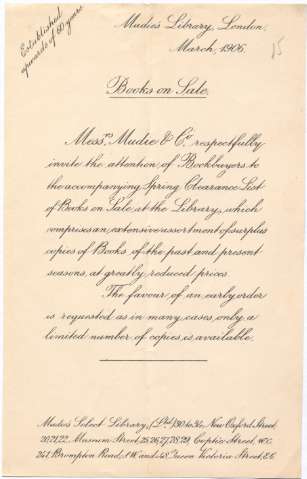 Established
upwards of 60 years
Mudie's Library, London.
March, 1906.
15
Books on Sale.
Mess.rs Mudie & Co. respectfully
invite the attention of Bookbuyers to
the accompanying Spring Clearance List
of Books on Sale at the Library, which
comprises an extensive assortment of surplus
copies of Books of the past and present
seasons, at greatly reduced prices.
The favour of an early order
is requested as in many cases, only a
limited number of copies is available.
Mudie's Select Library, (Ltd) 30 to 34, New Oxford Street,
20, 21, 22, Museum Street, 25, 26, 27, 28, 29, Coptic Street, W.C.
241, Brompton Road, S.W. and 48, Queen Victoria Street, E.C.